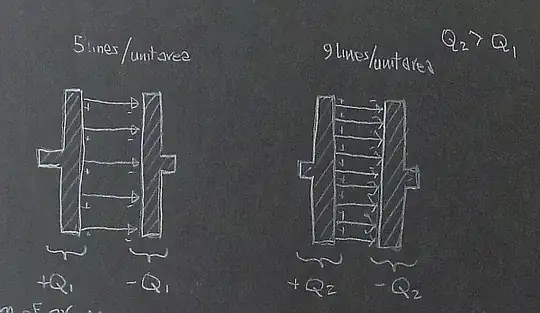 5 lines/unit area
9 lines/unit area
Q₂ > Q₁
+Q₁
-Q₁
+Q₂
-Q₂